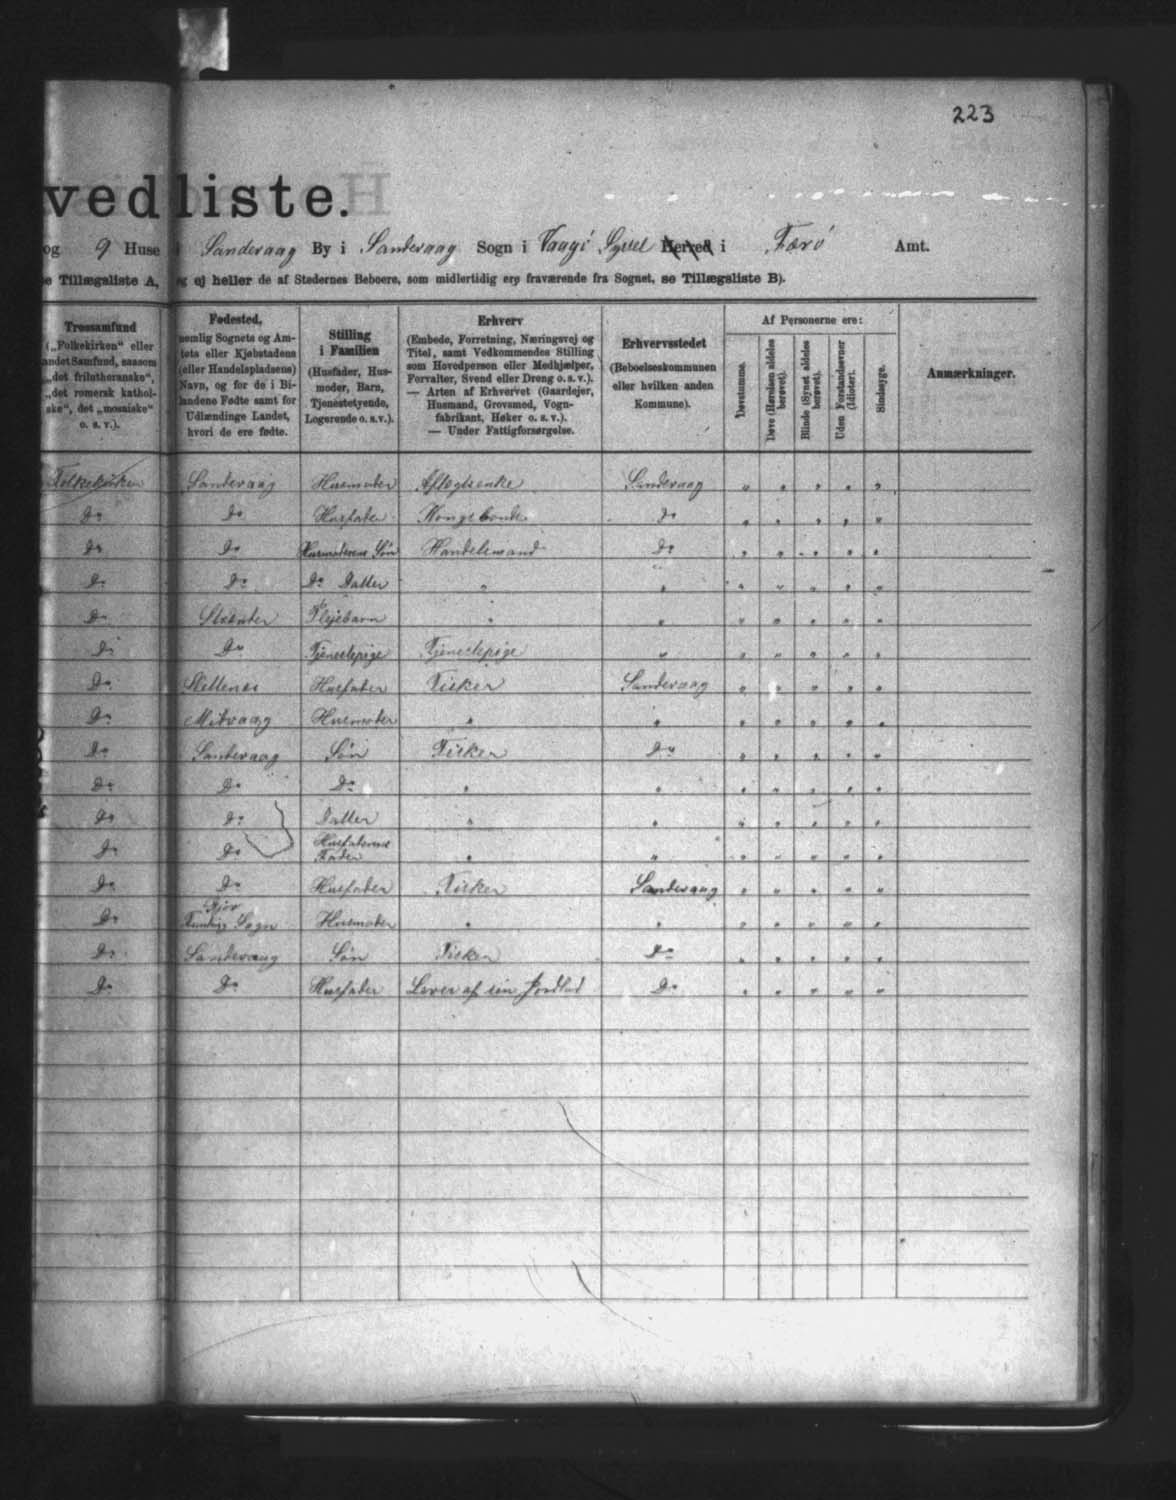 223
vedliste.
og 9 Huse i Sandevaag By i Sandevaag Sogn i Vaagø Syssel Herred i Færø Amt.
e Tillægsliste A, og ej heller de af Stedernes Beboere, som midlertidig ere fraværende fra Sognet, se Tillægsliste B).
Trossamfund
(„Folkekirken“ eller
andet Samfund, saasom
„det frilutheranske“,
„det romersk kathol-
ske“, det „mosaiske“
o. s. v.).
Fødested,
nemlig Sognets og Am-
tets eller Kjøbstadens
(eller Handelspladsens)
Navn, og for de i Bi-
landene Fødte samt for
Udlændinge Landet,
hvori de ere fødte.
Stilling
i Familien
(Husfader, Hus-
moder, Barn,
Tjenestetyende,
Logerende o. s. v.).
Erhverv
(Embede, Forretning, Næringsvej og
Titel, samt Vedkommendes Stilling
som Hovedperson eller Medhjælper,
Forvalter, Svend eller Dreng o. s. v.).
— Arten af Erhvervet (Gaardejer,
Husmand, Grovsmed, Vogn-
fabrikant, Høker o. s. v.).
— Under Fattigforsørgelse.
Erhvervsstedet
(Beboelseskommunen
eller hvilken anden
Kommune).
Af Personerne ere:
Døvstumme.
Døve (Hørelsen aldeles
berøvet).
Blinde (Synet aldeles
berøvet).
Uden Forstandsevner
(Idioter).
Sindssyge.
Anmærkninger.
Folkekirken Sandevaag Husmoder Aftægtsenke Sandevaag " " " " "
Do Do Husfader Kongebonde Do " " " " "
Do Do Husmoderens Søn Handelsmand Do " " " " "
Do Do Do Datter " " " " " " "
Do Plejebarn " " " " " " "
Do Do Tjenestepige Tjenestepige " " " " " "
Do Husfader Fisker Sandevaag " " " " "
Do Midvaag Husmoder " " " " " " "
Do Sandevaag Søn Fisker Do " " " " "
Do Do Do " " " " " " "
Do Do Datter " " " " " " "
Do Do Husfaderens Fader " " " " " " "
Do Do Husfader Fisker Sandevaag " " " " "
Do Sogn Husmoder " " " " " " "
Do Sandevaag Søn Fisker Do " " " " "
Do Do Husfader Lever af sin Jordlod Do " " " " "